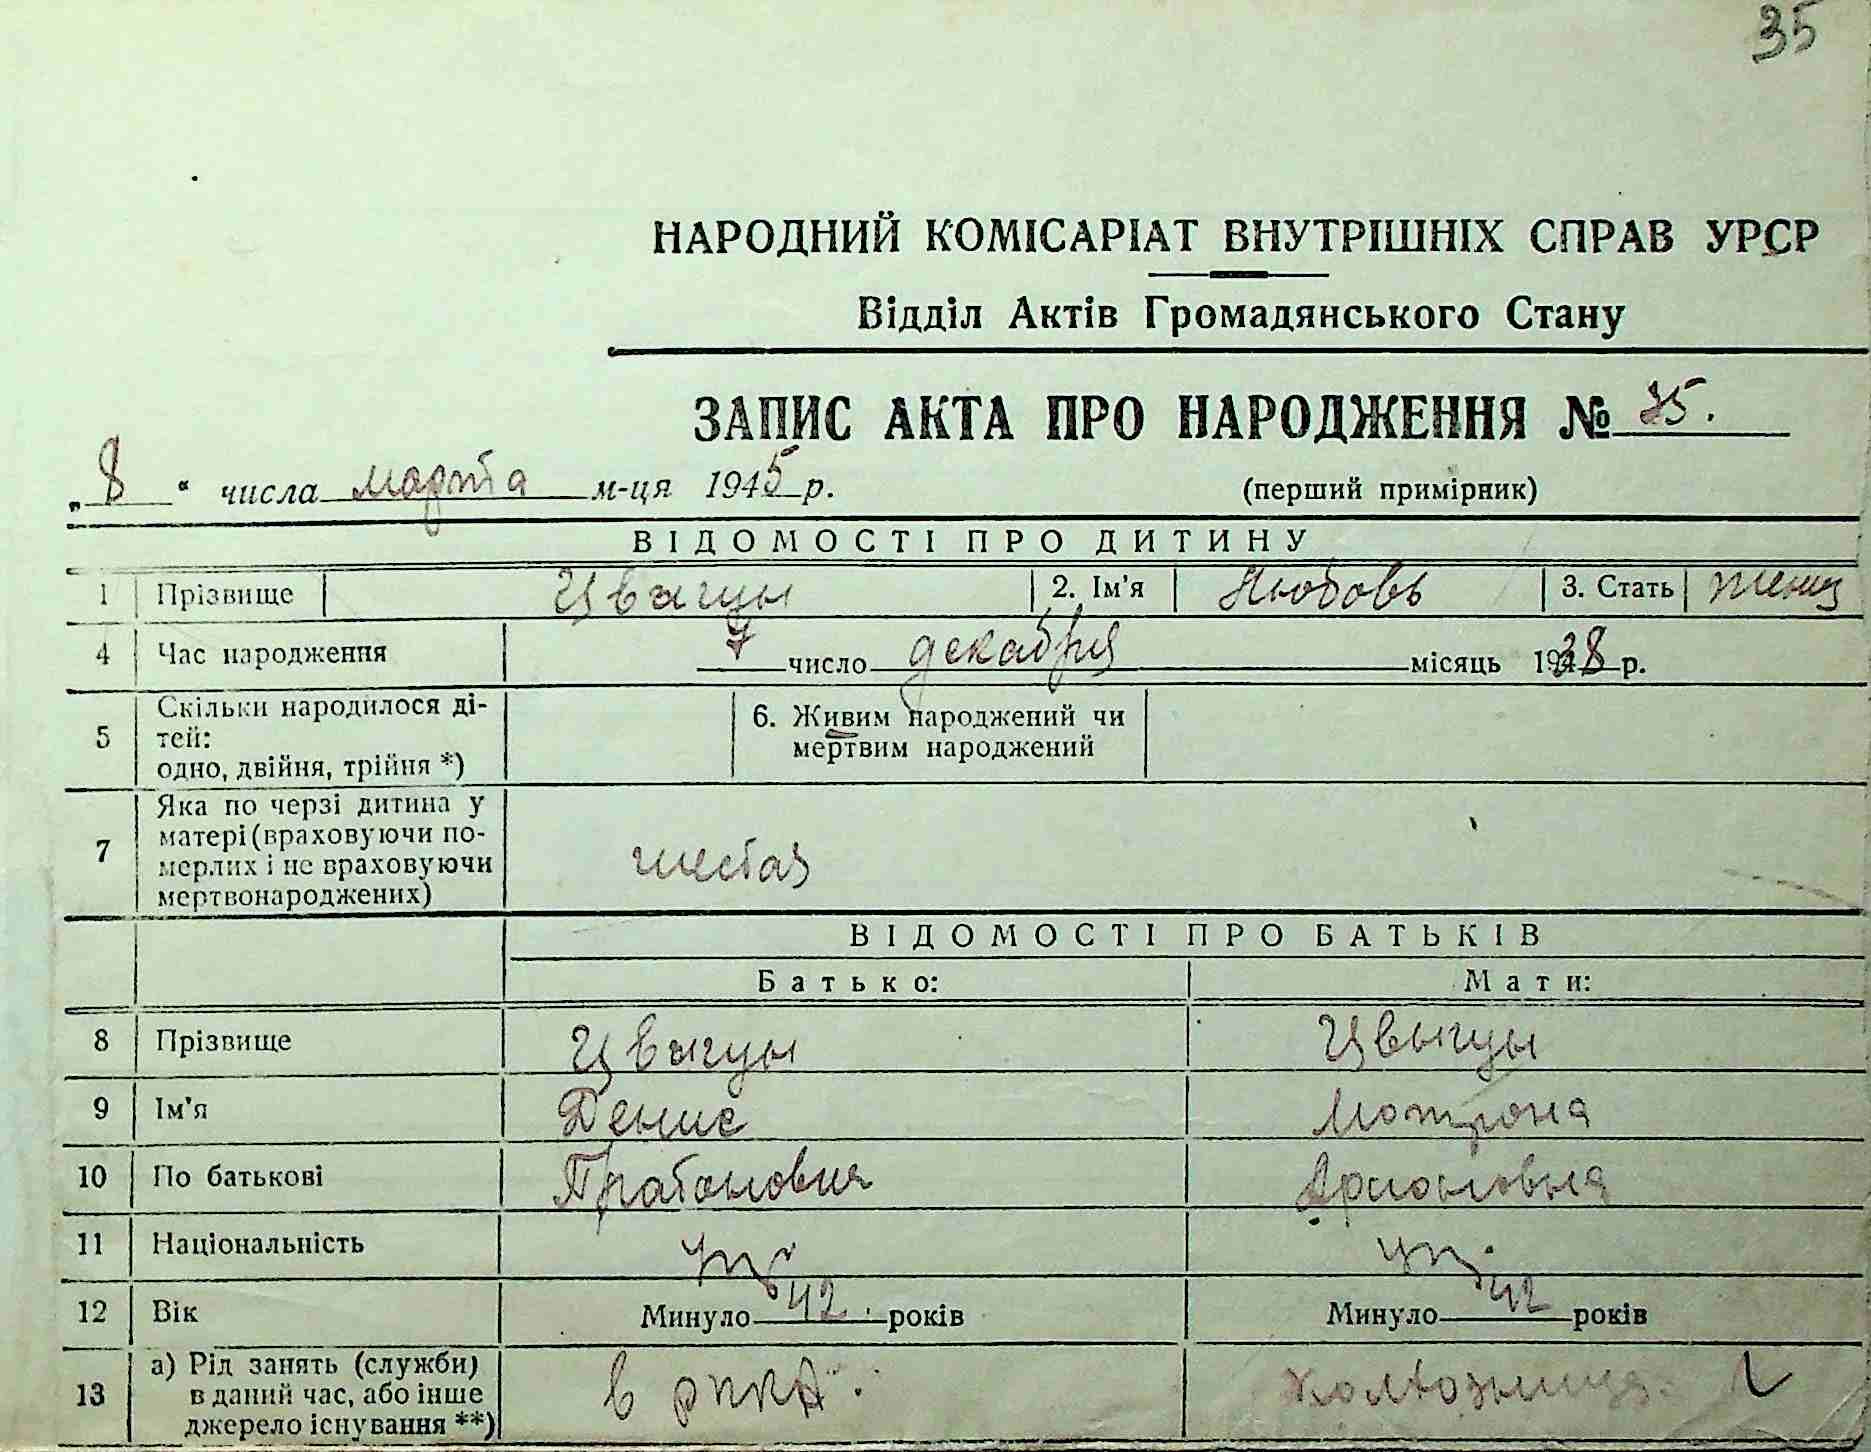 35
НАРОДНИЙ КОМІСАРІАТ ВНУТРІШНІХ СПРАВ УРСР
Відділ Актів Громадянського Стану
ЗАПИС АКТА ПРО НАРОДЖЕННЯ № 35.
„ 8 “ числа марта м-ця 1945 р. (перший примірник)
ВІДОМОСТІ ПРО ДИТИНУ
1 Прізвище 2. Ім'я Любовь 3. Стать женщ
4 Час народження 7 число декабря місяць 1938 р.
5 Скільки народилося ді-
тей:
одно, двійня, трійня *)
6. Живим народжений чи
мертвим народжений
7 Яка по черзі дитина у
матері (враховуючи по-
мерлих і не враховуючи
мертвонароджених)
шестая
ВІДОМОСТІ ПРО БАТЬКІВ
Батько: Мати:
8 Прізвище
9 Ім'я Денис Мотрона
10 По батькові
11 Національність укр. укр.
12 Вік Минуло 42 років Минуло 42 років
13 а) Рід занять (служби)
в даний час, або інше
джерело існування **)
в РККА. колхозница